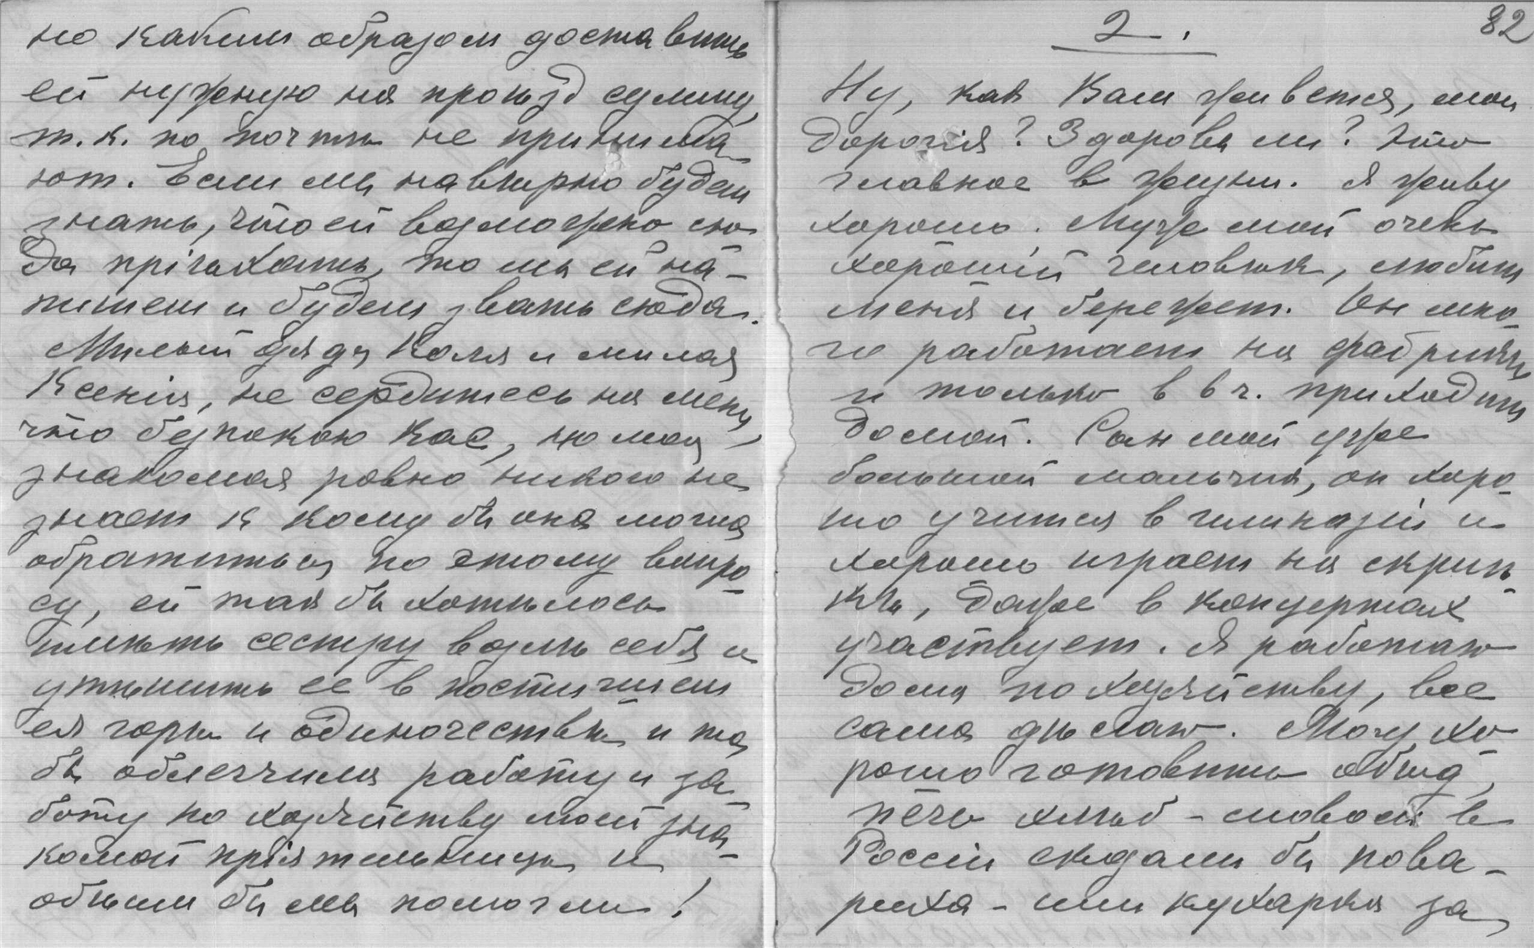 но какимъ образом доставить
ей нужную на проѣзд сумму,
т.к. по почтѣ не принима-
ют. Если мы навѣрно будем
знать, что ей возможно сю-
да пріѣхать, то мы ей на-
пишем и будем звать сюда.
Милый дядя Коля и милая
Ксенія, не сердитесь на меня,
что безпокою Вас, но моя
знакомая ровно никого не
знает к кому бы она могла
обратиться по этому вопро-
су, ей так бы хотѣлось
имѣть сестру возлѣ себя и
утѣшить ее в постигшем
ея горѣ и одиночествѣ и та
бы облегчила работу и за-
боту по хозяйству моей зна-
комой пріятельницѣ и
обѣим бы мы помогли!
2.
82
Ну, как Вам живется, мои
дорогія? Здоровы ли? Это
главное в жизни. Я живу
хорошо. Муж мой очень
хорошій человѣк, любит
меня и бережет. Он мно-
го работает на фабрикѣ
и только в 6 ч. приходит
домой. Сын мой уже
большой мальчик, он хоро-
шо учится в гимназіи и
хорошо играет на скрип-
кѣ, даже в концертах
участвует. Я работаю
дома по хозяйству, все
сама дѣлаю. Могу хо-
рошо готовить обѣд,
печь хлѣб - словом в
Россіи сказали бы пова-
риха - или кухарка за